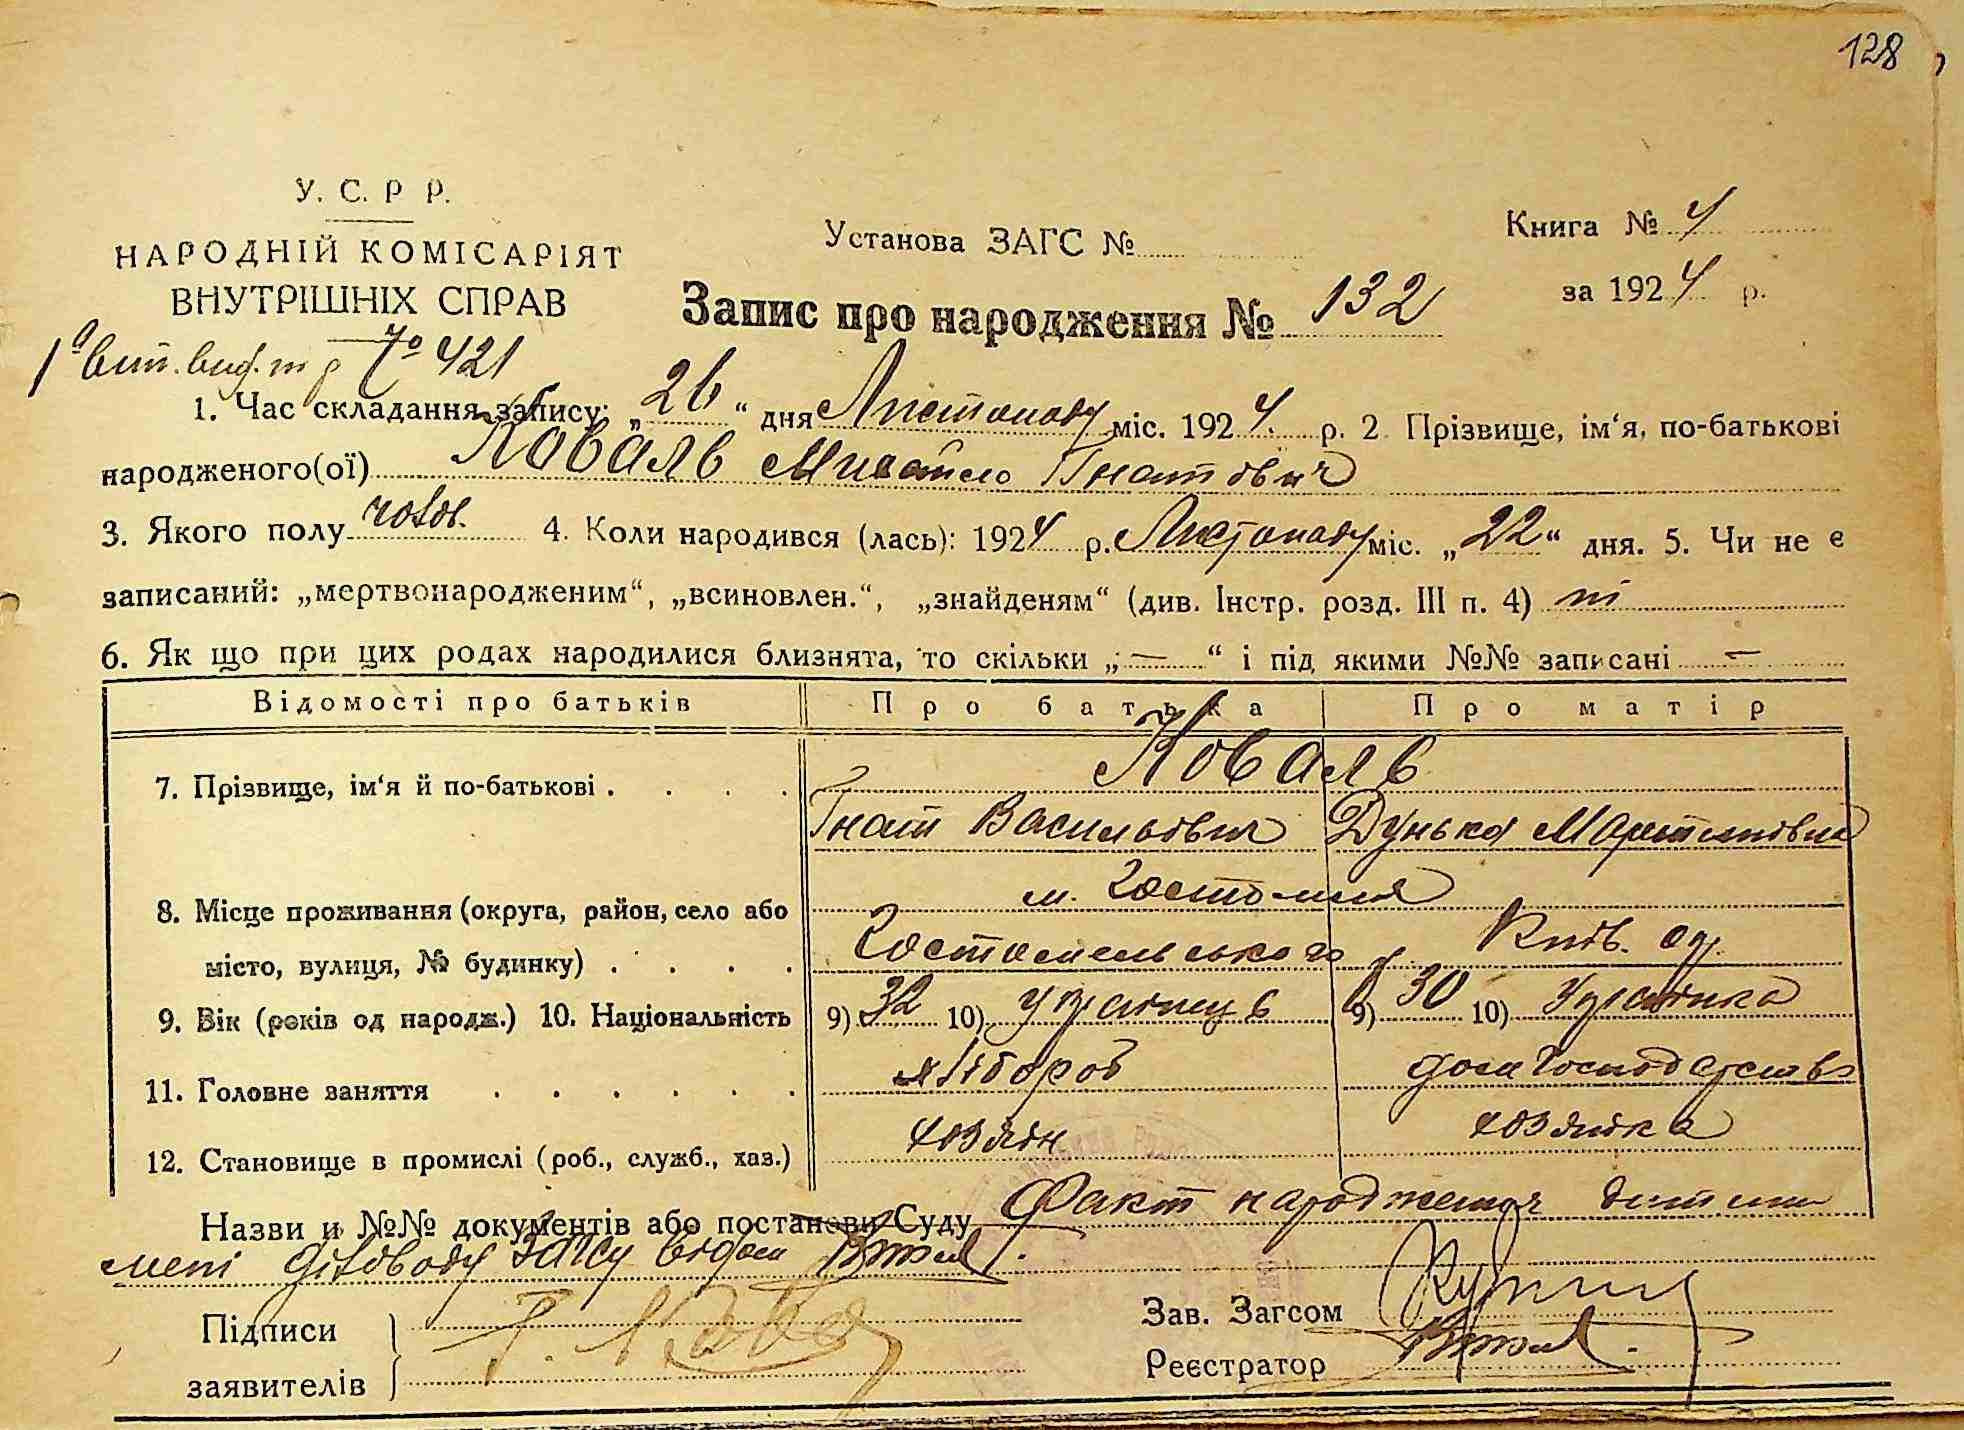 128
У. С. Р Р.
НАРОДНІЙ КОМІСАРІЯТ
ВНУТРІШНІХ СПРАВ
Установа ЗАГС №
Книга № 4
за 1924 р.
Запис про народження № 132
421
1. Час складання запису: „26“ дня Листопаду міс. 1924. р. 2. Прізвище, ім‘я, по-батькові
народженого(ої) Коваль Михайло Гнатович
3. Якого полу чолов. 4. Коли народився (лась): 1924 р. Листопаду міс. „22“ дня. 5. Чи не є
записаний: „мертвонародженим“, „всиновлен.“, „знайденям“ (див. Інстр. розд. III п. 4) ні
6. Як що при цих родах народилися близнята, то скільки „—“ і під якими №№ записані —
Відомості про батьків Про батька Про матір
Коваль
7. Прізвище, ім‘я й по-батькові . . . .
Гнат Васильович Дунька Мартинівна
м. Гостомля
8. Місце проживання (округа, район, село або
місто, вулиця, № будинку) . . . .
Гостомельського р. Київ. окр.
9. Вік (років од народж.) 10. Національність 9) 32 10) українець 9) 30 10) українка
11. Головне заняття . . . . . . хлібороб дом господарство
12. Становище в промислі (роб., служб., хаз.) хозяін хозяйка
Назви й №№ документів або постанови Суду Факт народження дитини
мені діловоду Загсу відом
Підписи
заявителів
Зав. Загсом
Реєстратор